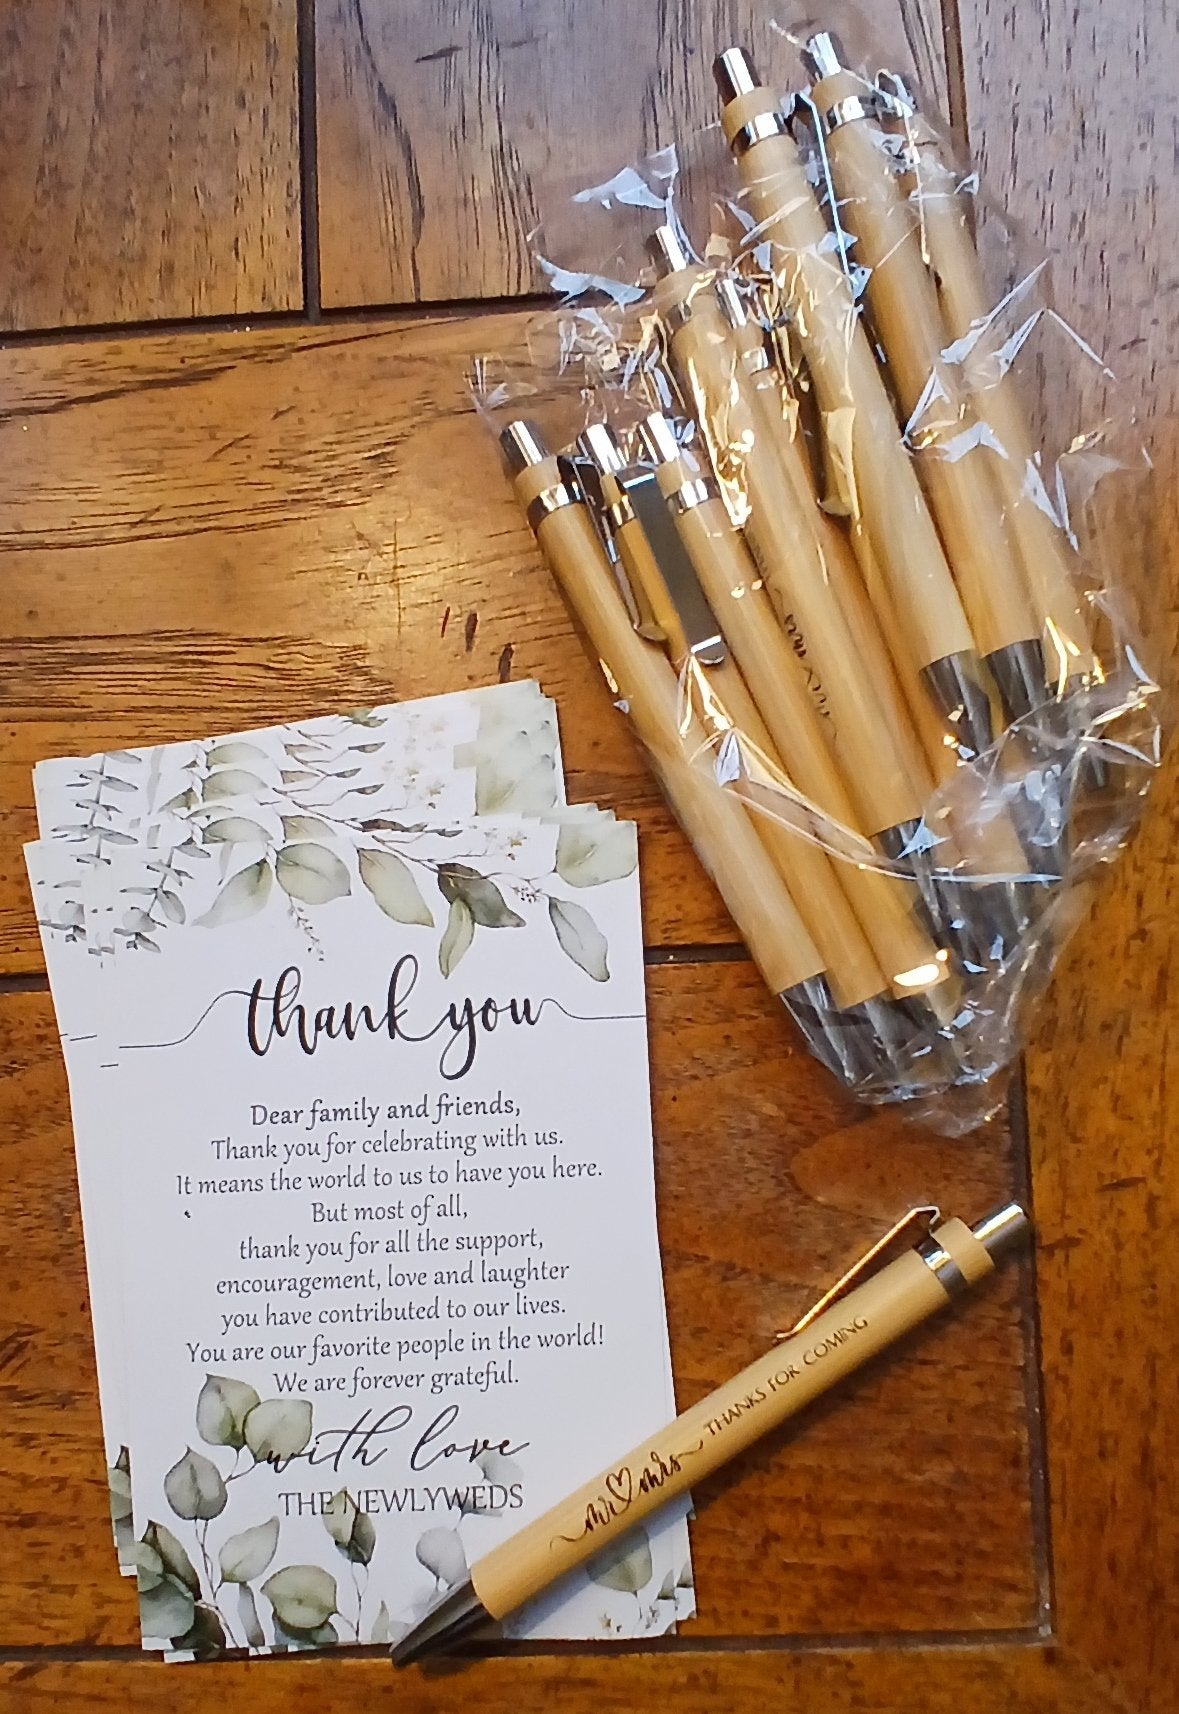 thank you
Dear family and friends,
Thank you for celebrating with us.
It means the world to us to have you here.
But most of all,
thank you for all the support,
encouragement, love and laughter
you have contributed to our lives.
You are our favorite people in the world!
We are forever grateful.
with love
THE NEWLYWEDS
mr♡mrs THANKS FOR COMING
mrs